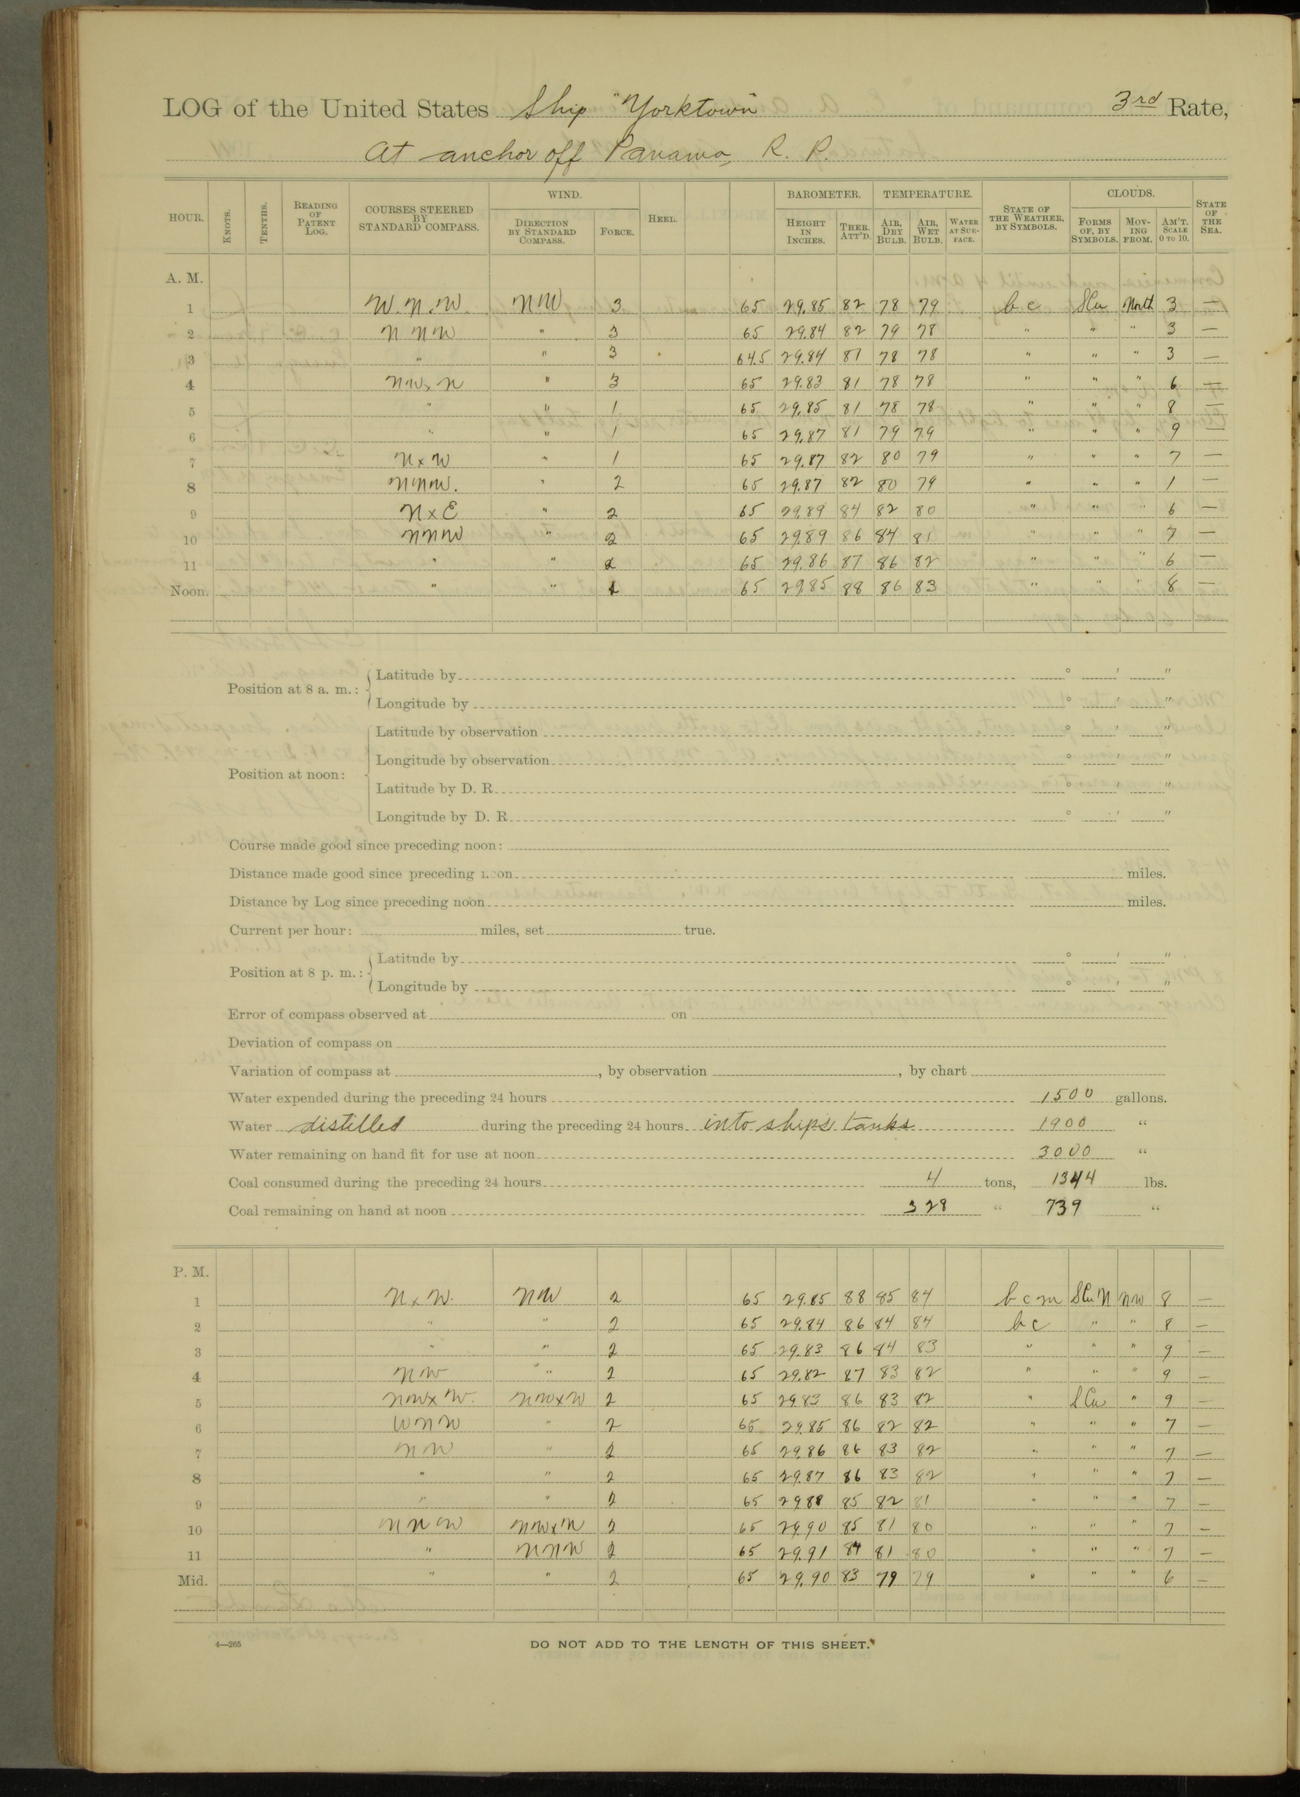 LOG of the United States Ship "Yorktown" 3rd Rate,
At anchor off Panama, R. P.
HOUR. KNOTS. TENTHS. READING OF PATENT LOG. COURSES STEERED BY STANDARD COMPASS. WIND. DIRECTION BY STANDARD COMPASS. FORCE. HEEL. BAROMETER. HEIGHT IN INCHES. THER. ATT'D. TEMPERATURE. AIR, DRY BULB. AIR, WET BULB. WATER AT SURFACE. STATE OF THE WEATHER, BY SYMBOLS. CLOUDS. FORMS OF, BY SYMBOLS. MOVING FROM. AM'T. SCALE 0 TO 10. STATE OF THE SEA.
A. M.
1 W.N.W. NW 3 65 29.85 82 78 79 b c SCu North 3 —
2 NNW " 3 65 29.84 82 79 78 " " " 3 —
3 " " 3 64.5 29.84 81 78 78 " " " 3 —
4 NWxN " 3 65 29.83 81 78 78 " " " 6 —
5 " " 1 65 29.85 81 78 78 " " " 8 —
6 " " 1 65 29.87 81 79 79 " " " 9 —
7 NxW " 1 65 29.87 82 80 79 " " " 7 —
8 NNW. " 2 65 29.87 82 80 79 " " " 1 —
9 NxE " 2 65 29.89 84 82 80 " " " 6 —
10 NNW " 2 65 29.89 86 84 81 " " " 7 —
11 " " 2 65 29.86 87 86 82 " " " 6 —
Noon. " " 1 65 29.85 88 86 83 " " " 8 —
Position at 8 a. m.: Latitude by ° ' "
Longitude by ° ' "
Position at noon: Latitude by observation ° ' "
Longitude by observation ° ' "
Latitude by D. R. ° ' "
Longitude by D. R. ° ' "
Course made good since preceding noon:
Distance made good since preceding noon miles.
Distance by Log since preceding noon miles.
Current per hour: miles, set true.
Position at 8 p. m.: Latitude by ° ' "
Longitude by ° ' "
Error of compass observed at on
Deviation of compass on
Variation of compass at , by observation , by chart
Water expended during the preceding 24 hours 1500 gallons.
Water distilled during the preceding 24 hours into ships tanks 1900 "
Water remaining on hand fit for use at noon 3000 "
Coal consumed during the preceding 24 hours 4 tons, 1344 lbs.
Coal remaining on hand at noon 328 " 739 "
P. M.
1 NxW. NW 2 65 29.85 88 85 84 b c m SCu N NW 8 —
2 " " 2 65 29.84 86 84 84 b c " " 8 —
3 " " 2 65 29.83 86 84 83 " " " 9 —
4 NW " 2 65 29.82 87 83 82 " " " 9 —
5 NWxW. NWxW 2 65 29.83 86 83 82 " SCu " 9 —
6 WNW " 2 65 29.85 86 82 82 " " " 7 —
7 NW " 2 65 29.86 86 83 82 " " " 7 —
8 " " 2 65 29.87 86 83 82 " " " 7 —
9 " " 2 65 29.88 85 82 81 " " " 7 —
10 NNW NWxN 2 65 29.90 85 81 80 " " " 7 —
11 " NNW 2 65 29.91 84 81 80 " " " 7 —
Mid. " " 2 65 29.90 83 79 79 " " " 6 —
4—265 DO NOT ADD TO THE LENGTH OF THIS SHEET.